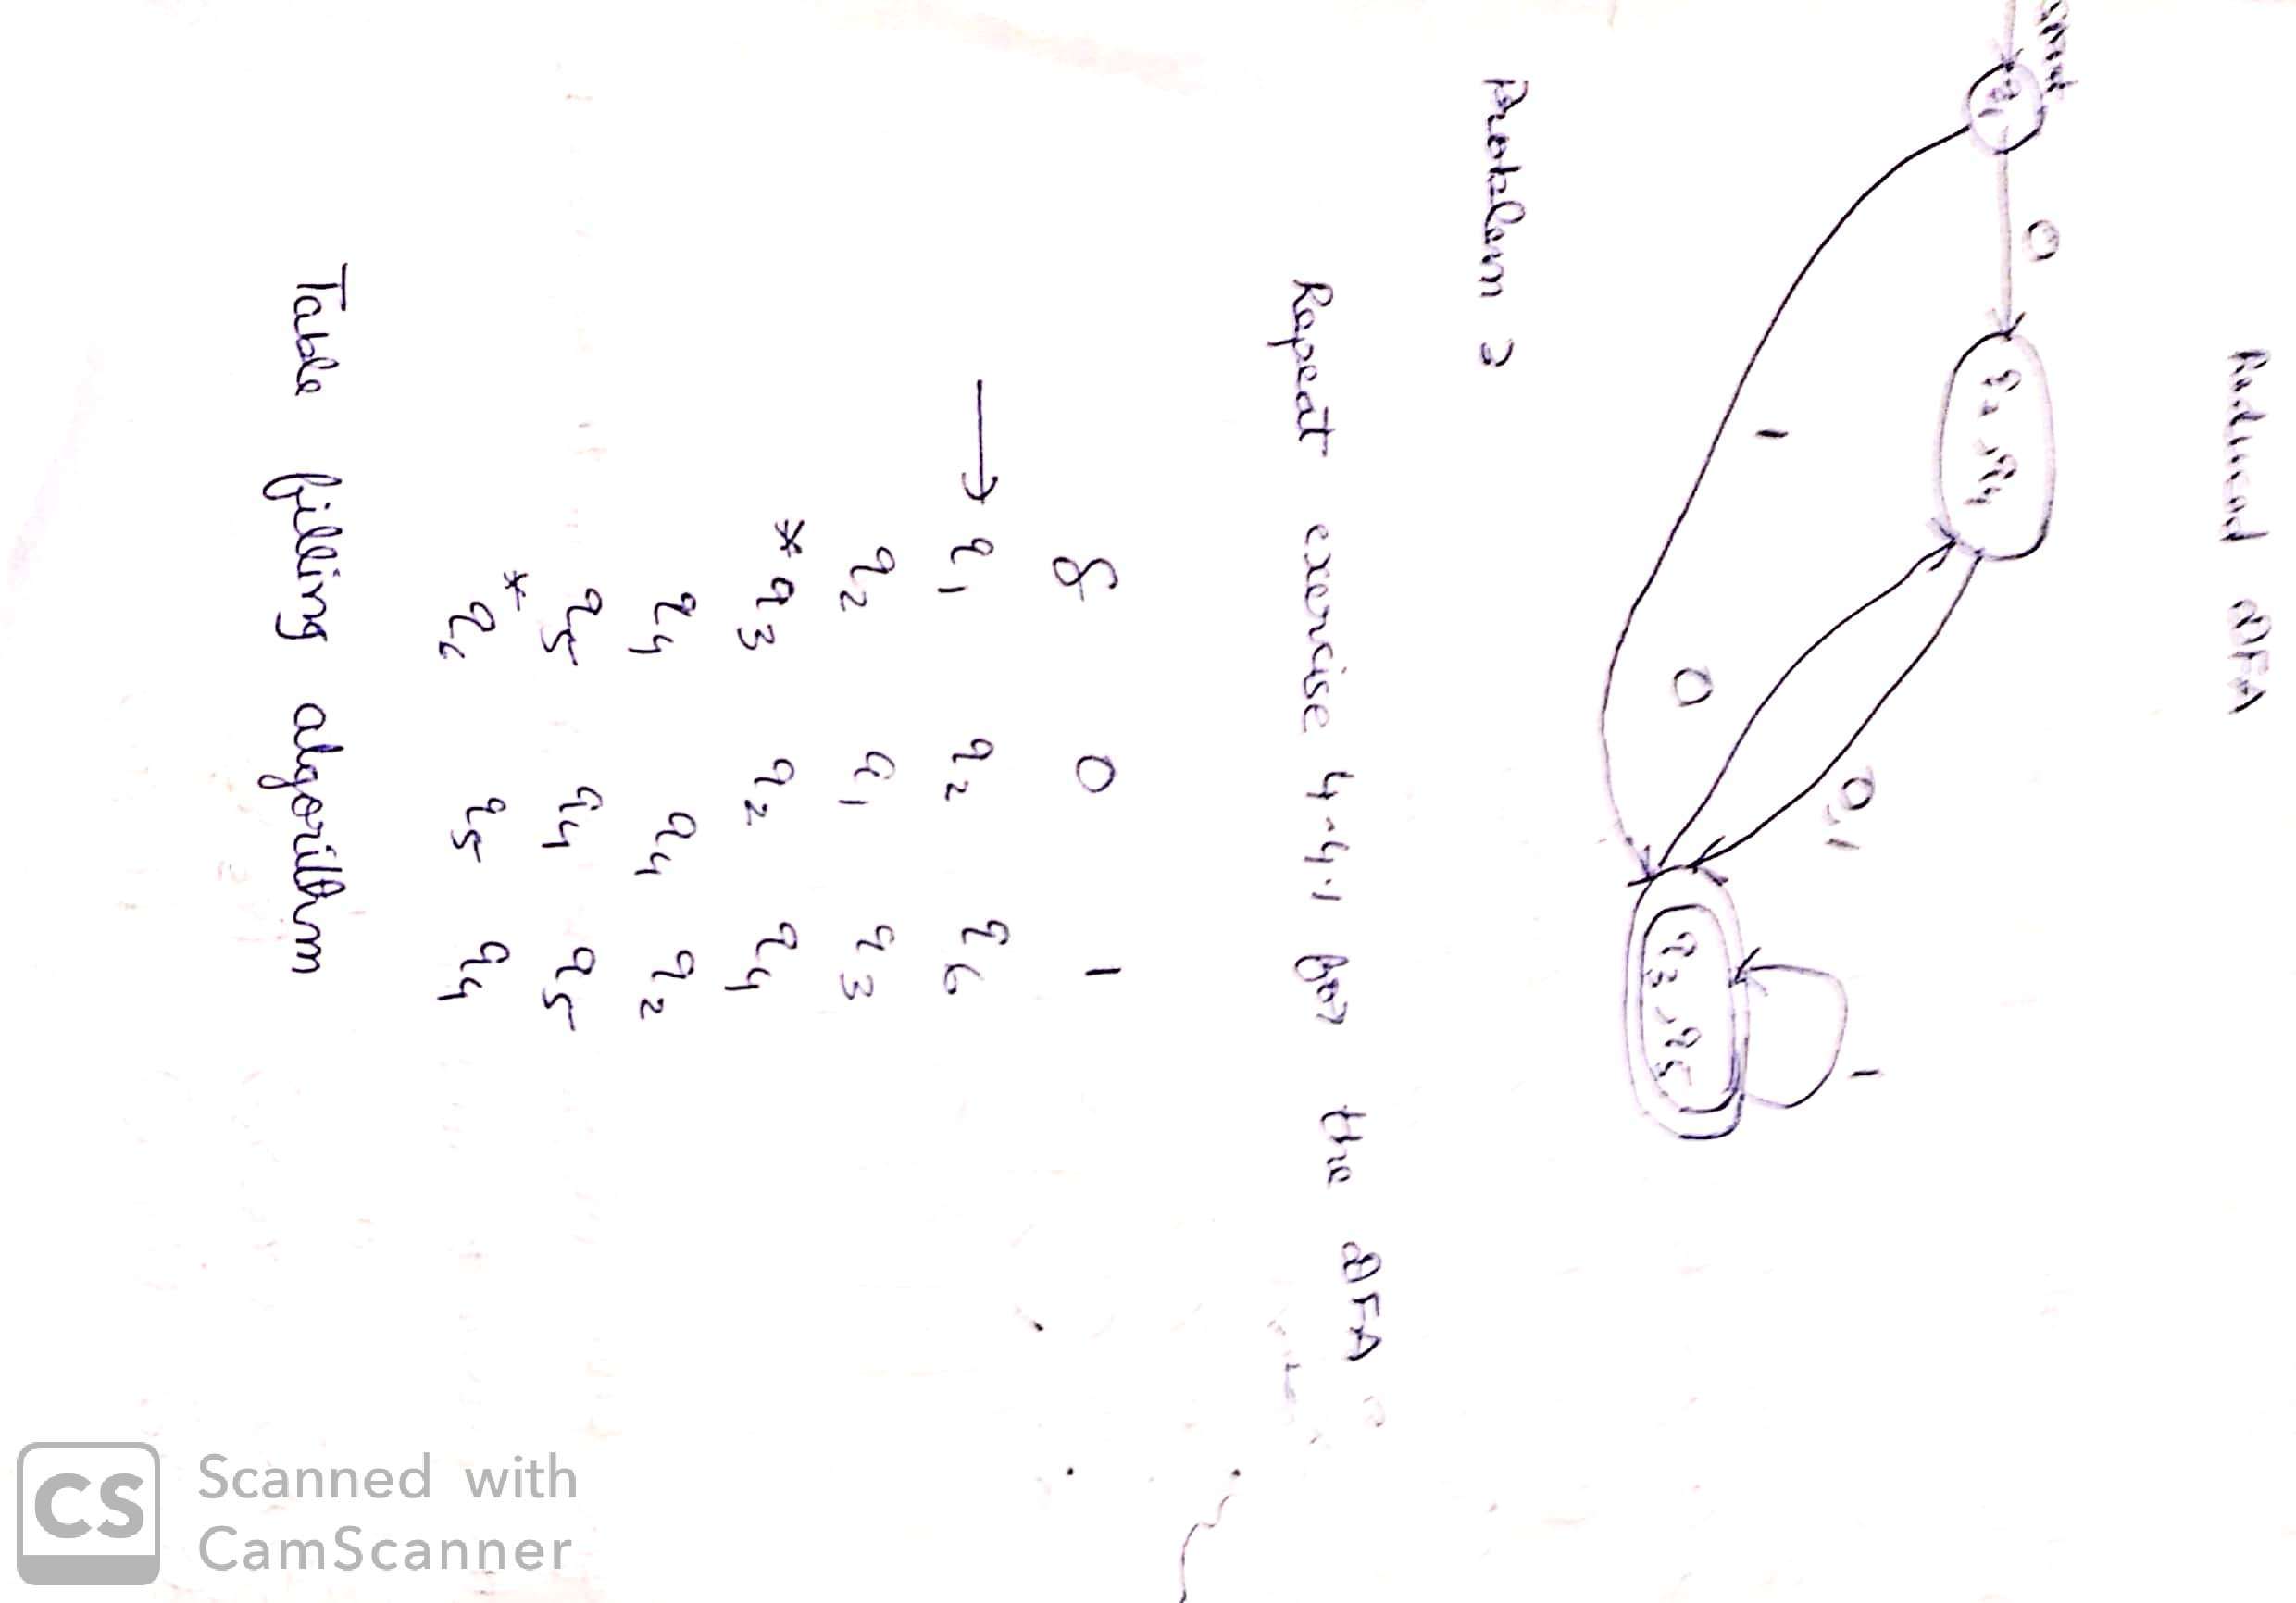 Reduced DFA
start
q1
0
q2, q4
0,1
1
0
q3, q5
1
Problem 3
Repeat exercise 4.4.1 for the DFA
δ 0 1
→ q1 q2 q6
q2 q1 q3
* q3 q2 q4
q4 q4 q2
q5 q4 q5
* q6 q5 q4
Table filling algorithm
CS
Scanned with
CamScanner